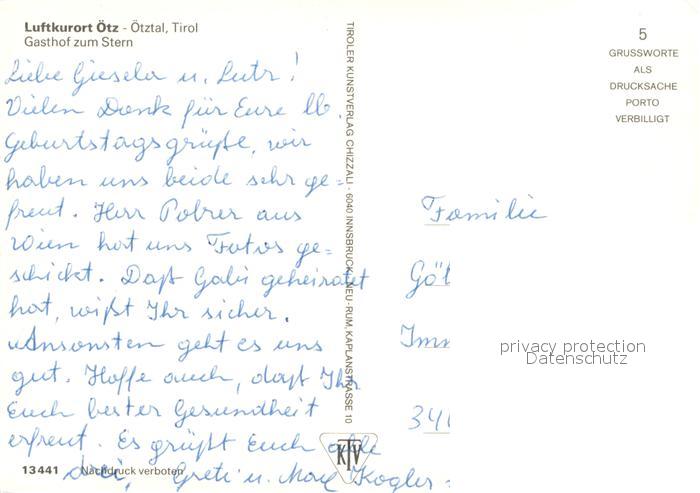 Luftkurort Ötz - Ötztal, Tirol
Gasthof zum Stern
Liebe Giesela u. Lutz!
Vielen Dank für Eure lb.
Geburtstagsgrüße, wir
haben uns beide sehr ge=
freut. Herr Pobrer aus
Wien hat uns Fotos ge=
schickt. Daß Gabi geheiratet
hat, wißt Ihr sicher.
Ansonsten geht es uns
gut. Hoffe auch, daß Ihr
Euch bester Gesundheit
erfreut. Es grüßt Euch alle
drei, Greti u. Max Kogler
13441 Nachdruck verboten
TIROLER KUNSTVERLAG CHIZZALI · 6040 INNSBRUCK-NEU-RUM, KAPLANSTRASSE 10
KTV
5
GRUSSWORTE
ALS
DRUCKSACHE
PORTO
VERBILLIGT
Familie
Göt
Imm
34
privacy protection
Datenschutz